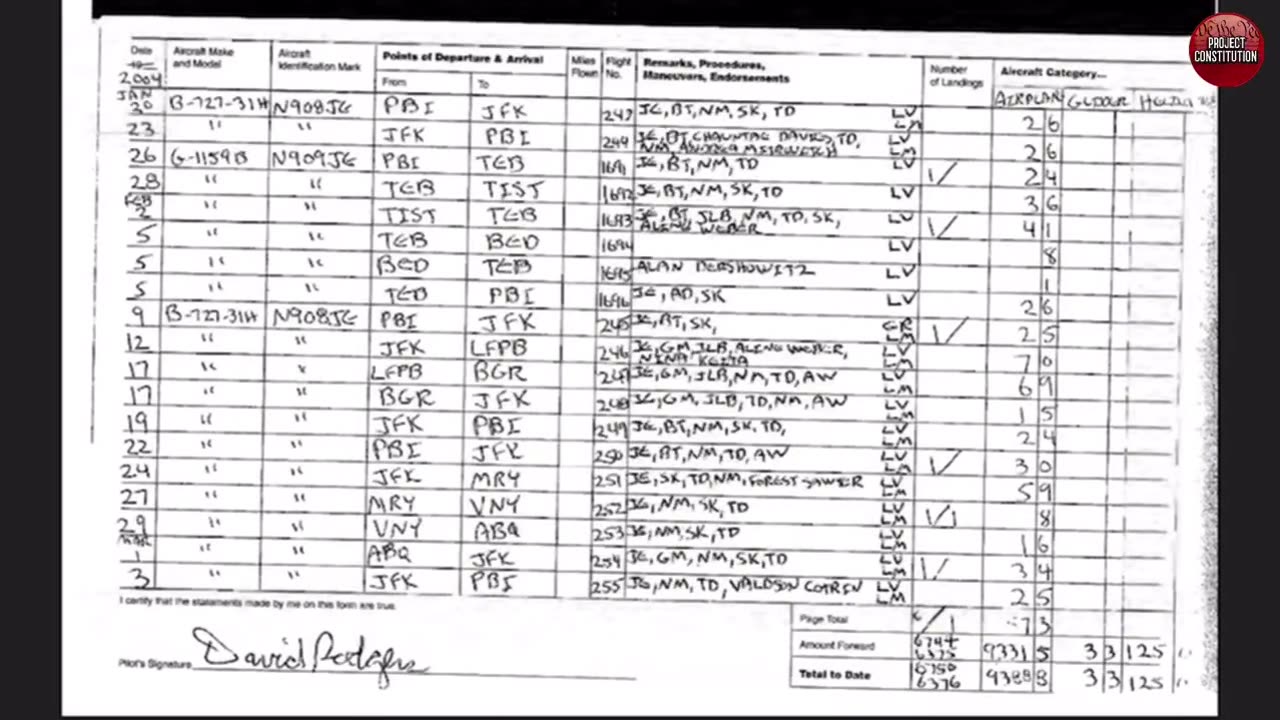 We the Pe
PROJECT
CONSTITUTION
Date Aircraft Make and Model Aircraft Identification Mark Points of Departure & Arrival From To Miles Flown Flight No. Remarks, Procedures, Maneuvers, Endorsements Number of Landings Aircraft Category...
2004 AIRPLAN
JAN 20 B-727-31H N908JE PBI JFK 247 JE, BT, NM, SK, TD LV LM 2 6
23 " " JFK PBI 244 JE, BT, CHAUNTAE DAVIES, TD, NM, LV LM 2 6
26 G-1159B N909JE PBI TEB 1691 JE, BT, NM, TD LV 1/ 2 4
28 " " TEB TIST 1692 JE, BT, NM, SK, TD LV 3 6
FEB 2 " " TIST TEB 1693 JE, BT, JLB, NM, TD, SK, ALINE WEBER LV 1/ 4 1
5 " " TEB BED 1694 LV 8
5 " " BED TEB 1695 ALAN DERSHOWITZ LV 1
5 " " TEB PBI 1696 JE, AD, SK LV 2 6
9 B-727-31H N908JE PBI JFK 245 JE, BT, SK, GR LM 1/ 2 5
12 " " JFK LFPB 246 JE, GM, JLB, ALINE WEBER, NINA KEITA LV LM 7 0
17 " " LFPB BGR 247 JE, GM, JLB, NM, TD, AW LV LM 6 9
17 " " BGR JFK 248 JE, GM, JLB, TD, NM, AW LV LM 1 5
19 " " JFK PBI 249 JE, BT, NM, SK, TD, LV LM 2 4
22 " " PBI JFK 250 JE, BT, NM, TD, AW LV LM 1/ 3 0
24 " " JFK MRY 251 JE, SK, TD, NM, FOREST SAWYER LV LM 5 9
27 " " MRY VNY 252 JE, NM, SK, TD LV LM 1/1 8
29 " " VNY ABQ 253 JE, NM, SK, TD LV LM 1 6
MAR 1 " " ABQ JFK 254 JE, GM, NM, SK, TD LV LM 1/ 3 4
3 " " JFK PBI 255 JE, NM, TD, VALDSON COTRIN LV LM 2 5
I certify that the statements made by me on this form are true.
Page Total 6/1 73
Amount Forward 6744 6375 9331 5 3 3 125
Total to Date 6750 6376 9388 8 3 3 125
Pilot's Signature David Rodgers